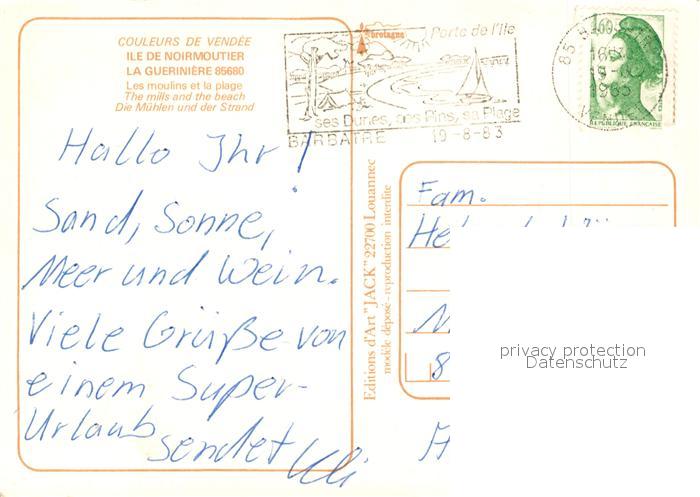 COULEURS DE VENDÉE
ILE DE NOIRMOUTIER
LA GUERINIÈRE 85680
Les moulins et la plage
The mills and the beach
Die Mühlen und der Strand
Hallo Ihr!
Sand, Sonne,
Meer und Wein.
Viele Grüße von
einem Super-
Urlaub sendet Uli
Editions d'Art "JACK" 22700 Louannec
modèle déposé - reproduction interdite
bretagne
Porte de l'Ile
ses Dunes, ses Pins, sa Plage
BARBATRE 19-8-83
85
1983
REPUBLIQUE FRANÇAISE
Fam.
He
N
8
privacy protection
Datenschutz